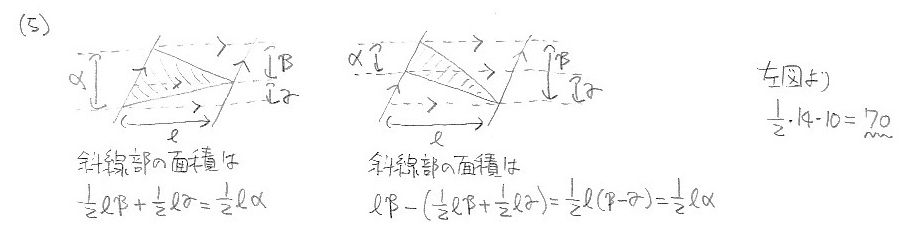 (5)
α β γ l
斜線部の面積は
1/2 lβ + 1/2 lγ = 1/2 lα
α β γ l
斜線部の面積は
lβ − (1/2 lβ + 1/2 lγ) = 1/2 l(β−γ) = 1/2 lα
左図より
1/2・14・10 = 70